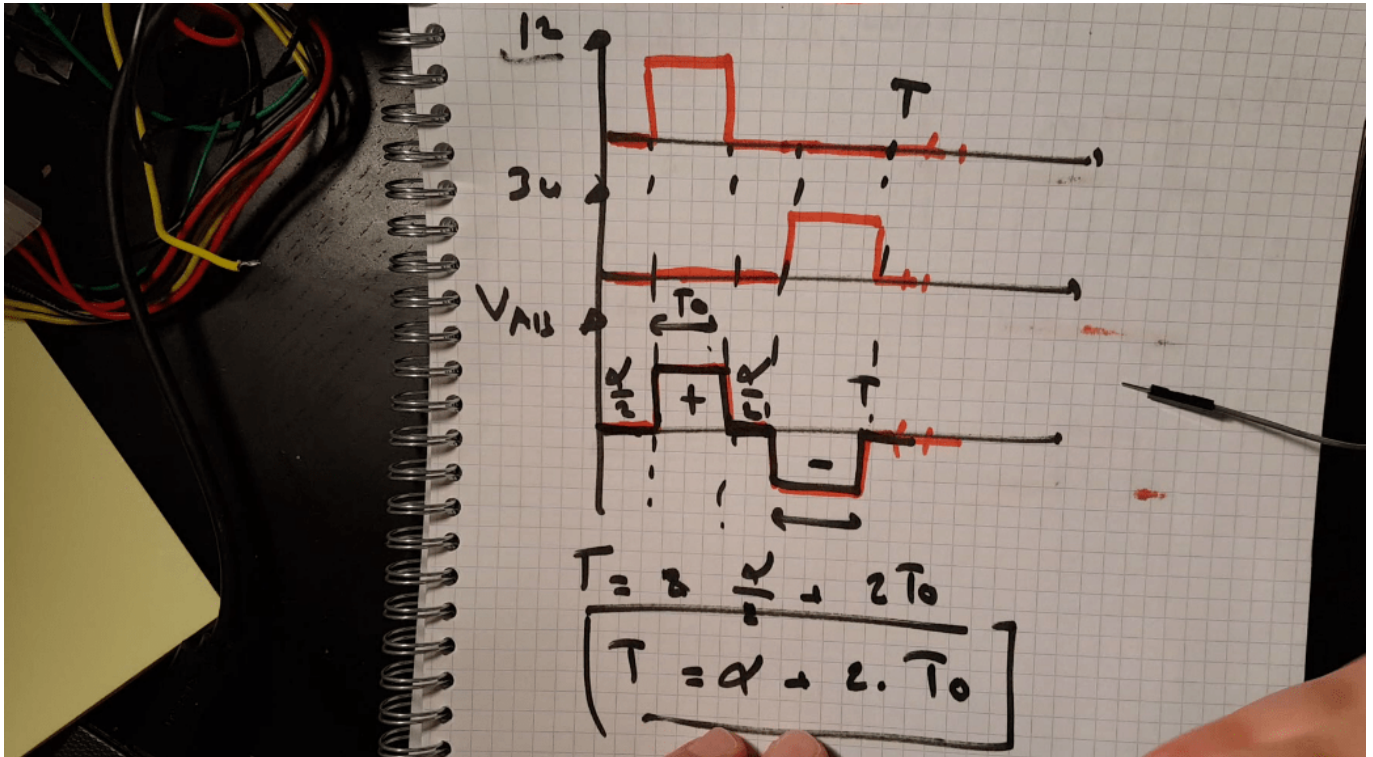 12
T
34
VAB
T0
α/2 + α/2 T
-
T = 2 α/2 + 2T0
T = α + 2. T0